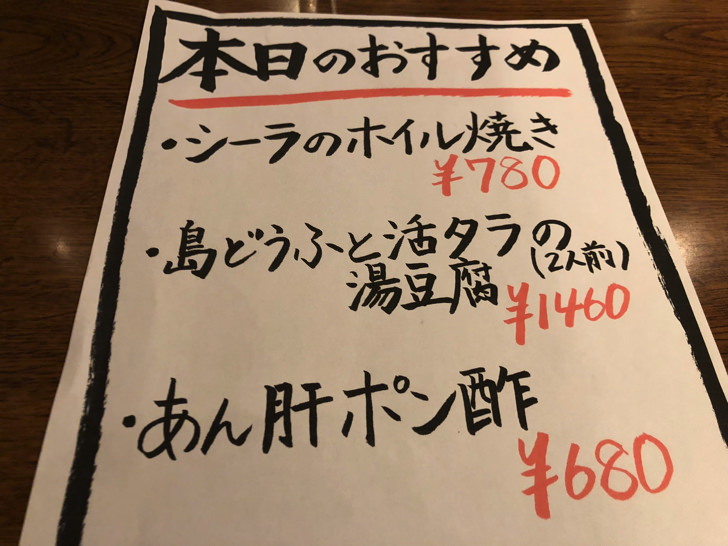 本日のおすすめ
・シーラのホイル焼き
¥780
・島どうふと活タラの
湯豆腐(2人前)
¥1460
・あん肝ポン酢
¥680